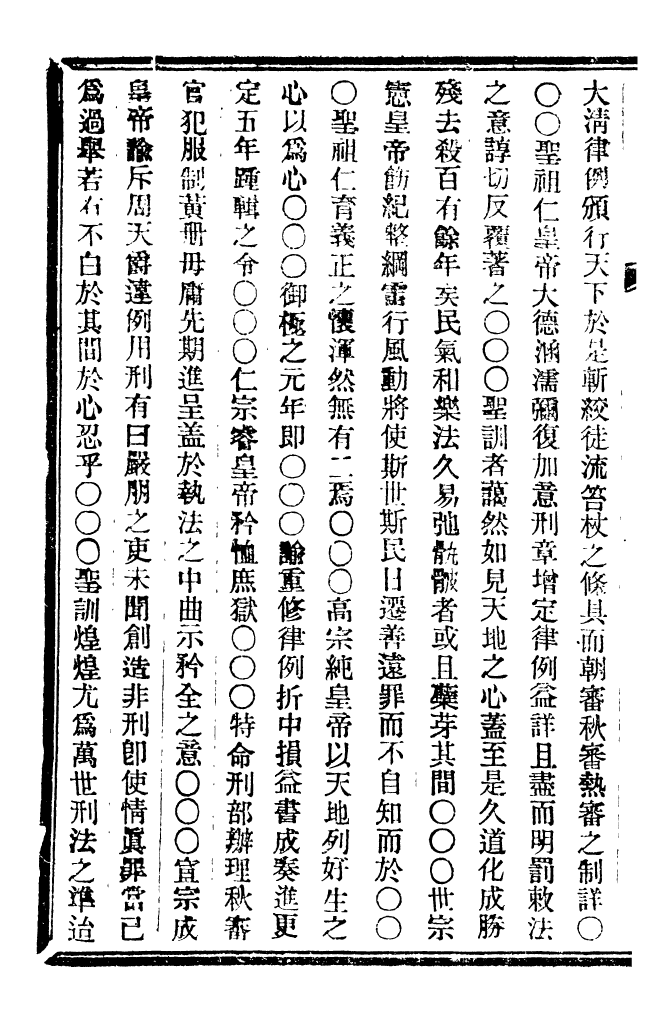 大淸律例頒行天下於是斬絞徒流笞杖之條具而朝審秋審熱審之制詳〇
〇〇聖祖仁皇帝大德涵濡彌復加意刑章增定律例益詳且盡而明罰敕法
之意諄切反覆著之〇〇〇聖訓者藹然如見天地之心蓋至是久道化成勝
殘去殺百有餘年矣民氣和樂法久易弛骫骳者或且蘖芽其間〇〇〇世宗
憲皇帝飭紀整綱雷行風動將使斯世斯民日遷善遠罪而不自知而於〇〇
〇聖祖仁育義正之懷渾然無有二焉〇〇〇高宗純皇帝以天地列好生之
心以爲心〇〇〇御極之元年即〇〇〇諭重修律例折中損益書成奏進更
定五年踵輯之令〇〇〇仁宗睿皇帝矜恤庶獄〇〇〇特命刑部辦理秋審
官犯服制黃册毋庸先期進呈盖於執法之中曲示矜全之意〇〇〇宣宗成
皇帝諭斥周天爵違例用刑有曰嚴朋之吏未聞創造非刑卽使情眞罪當已
爲過舉若有不白於其間於心忍乎〇〇〇聖訓煌煌尤爲萬世刑法之準迨